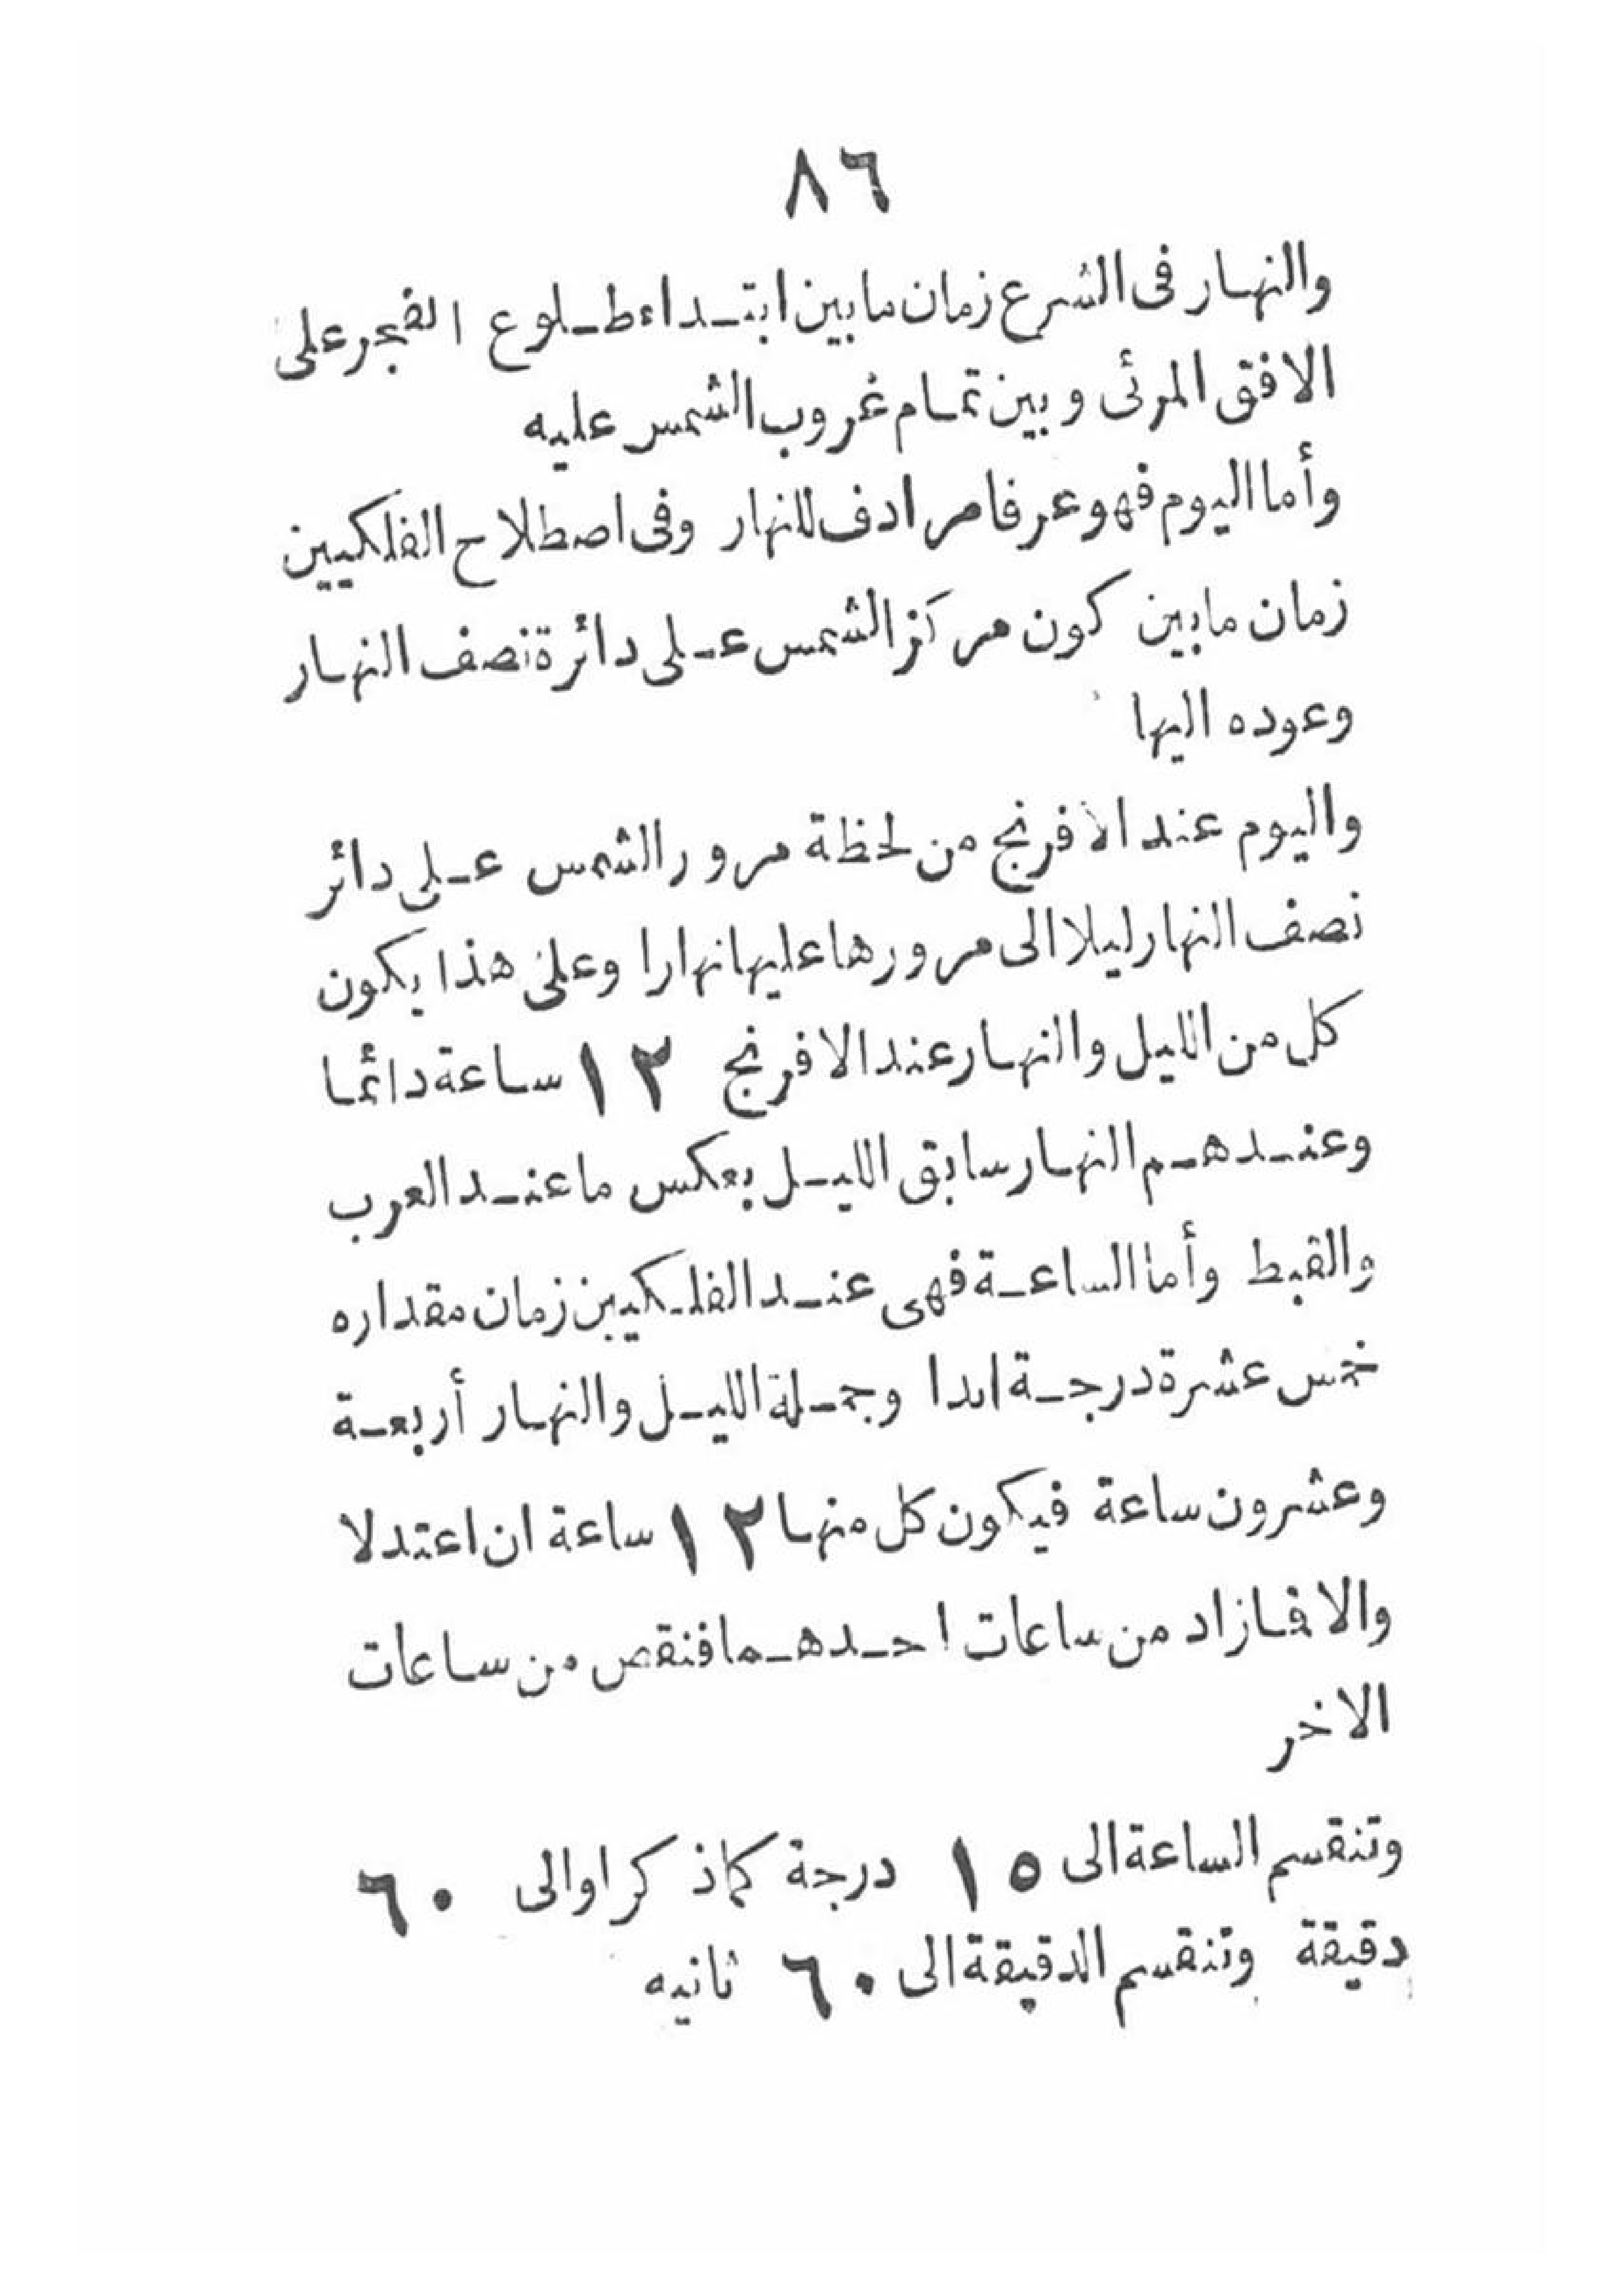 ٨٦
والنهار فى الشرع زمان ما بين ابتداء طلوع الفجر على
الافق المرئى وبين تمام غروب الشمس عليه
وأما اليوم فهو عرفا مرادف للنهار وفى اصطلاح الفلكيين
زمان ما بين كون مركز الشمس على دائرة نصف النهار
وعوده اليها
واليوم عند الافرنج من لحظة مرور الشمس على دائر
نصف النهار ليلا الى مرورها عليها نهارا وعلى هذا يكون
كل من الليل والنهار عند الافرنج ١٢ ساعة دائما
وعندهم النهار سابق الليل بعكس ما عند العرب
والقبط وأما الساعة فهى عند الفلكيين زمان مقداره
خمس عشرة درجة ابدا وجملة الليل والنهار أربعة
وعشرون ساعة فيكون كل منها ١٢ ساعة ان اعتدلا
والا فازاد من ساعات احدهما فنقص من ساعات
الاخر
وتنقسم الساعة الى ١٥ درجة كما ذكر اوالى ٦٠
دقيقة وتنقسم الدقيقة الى ٦٠ ثانيه